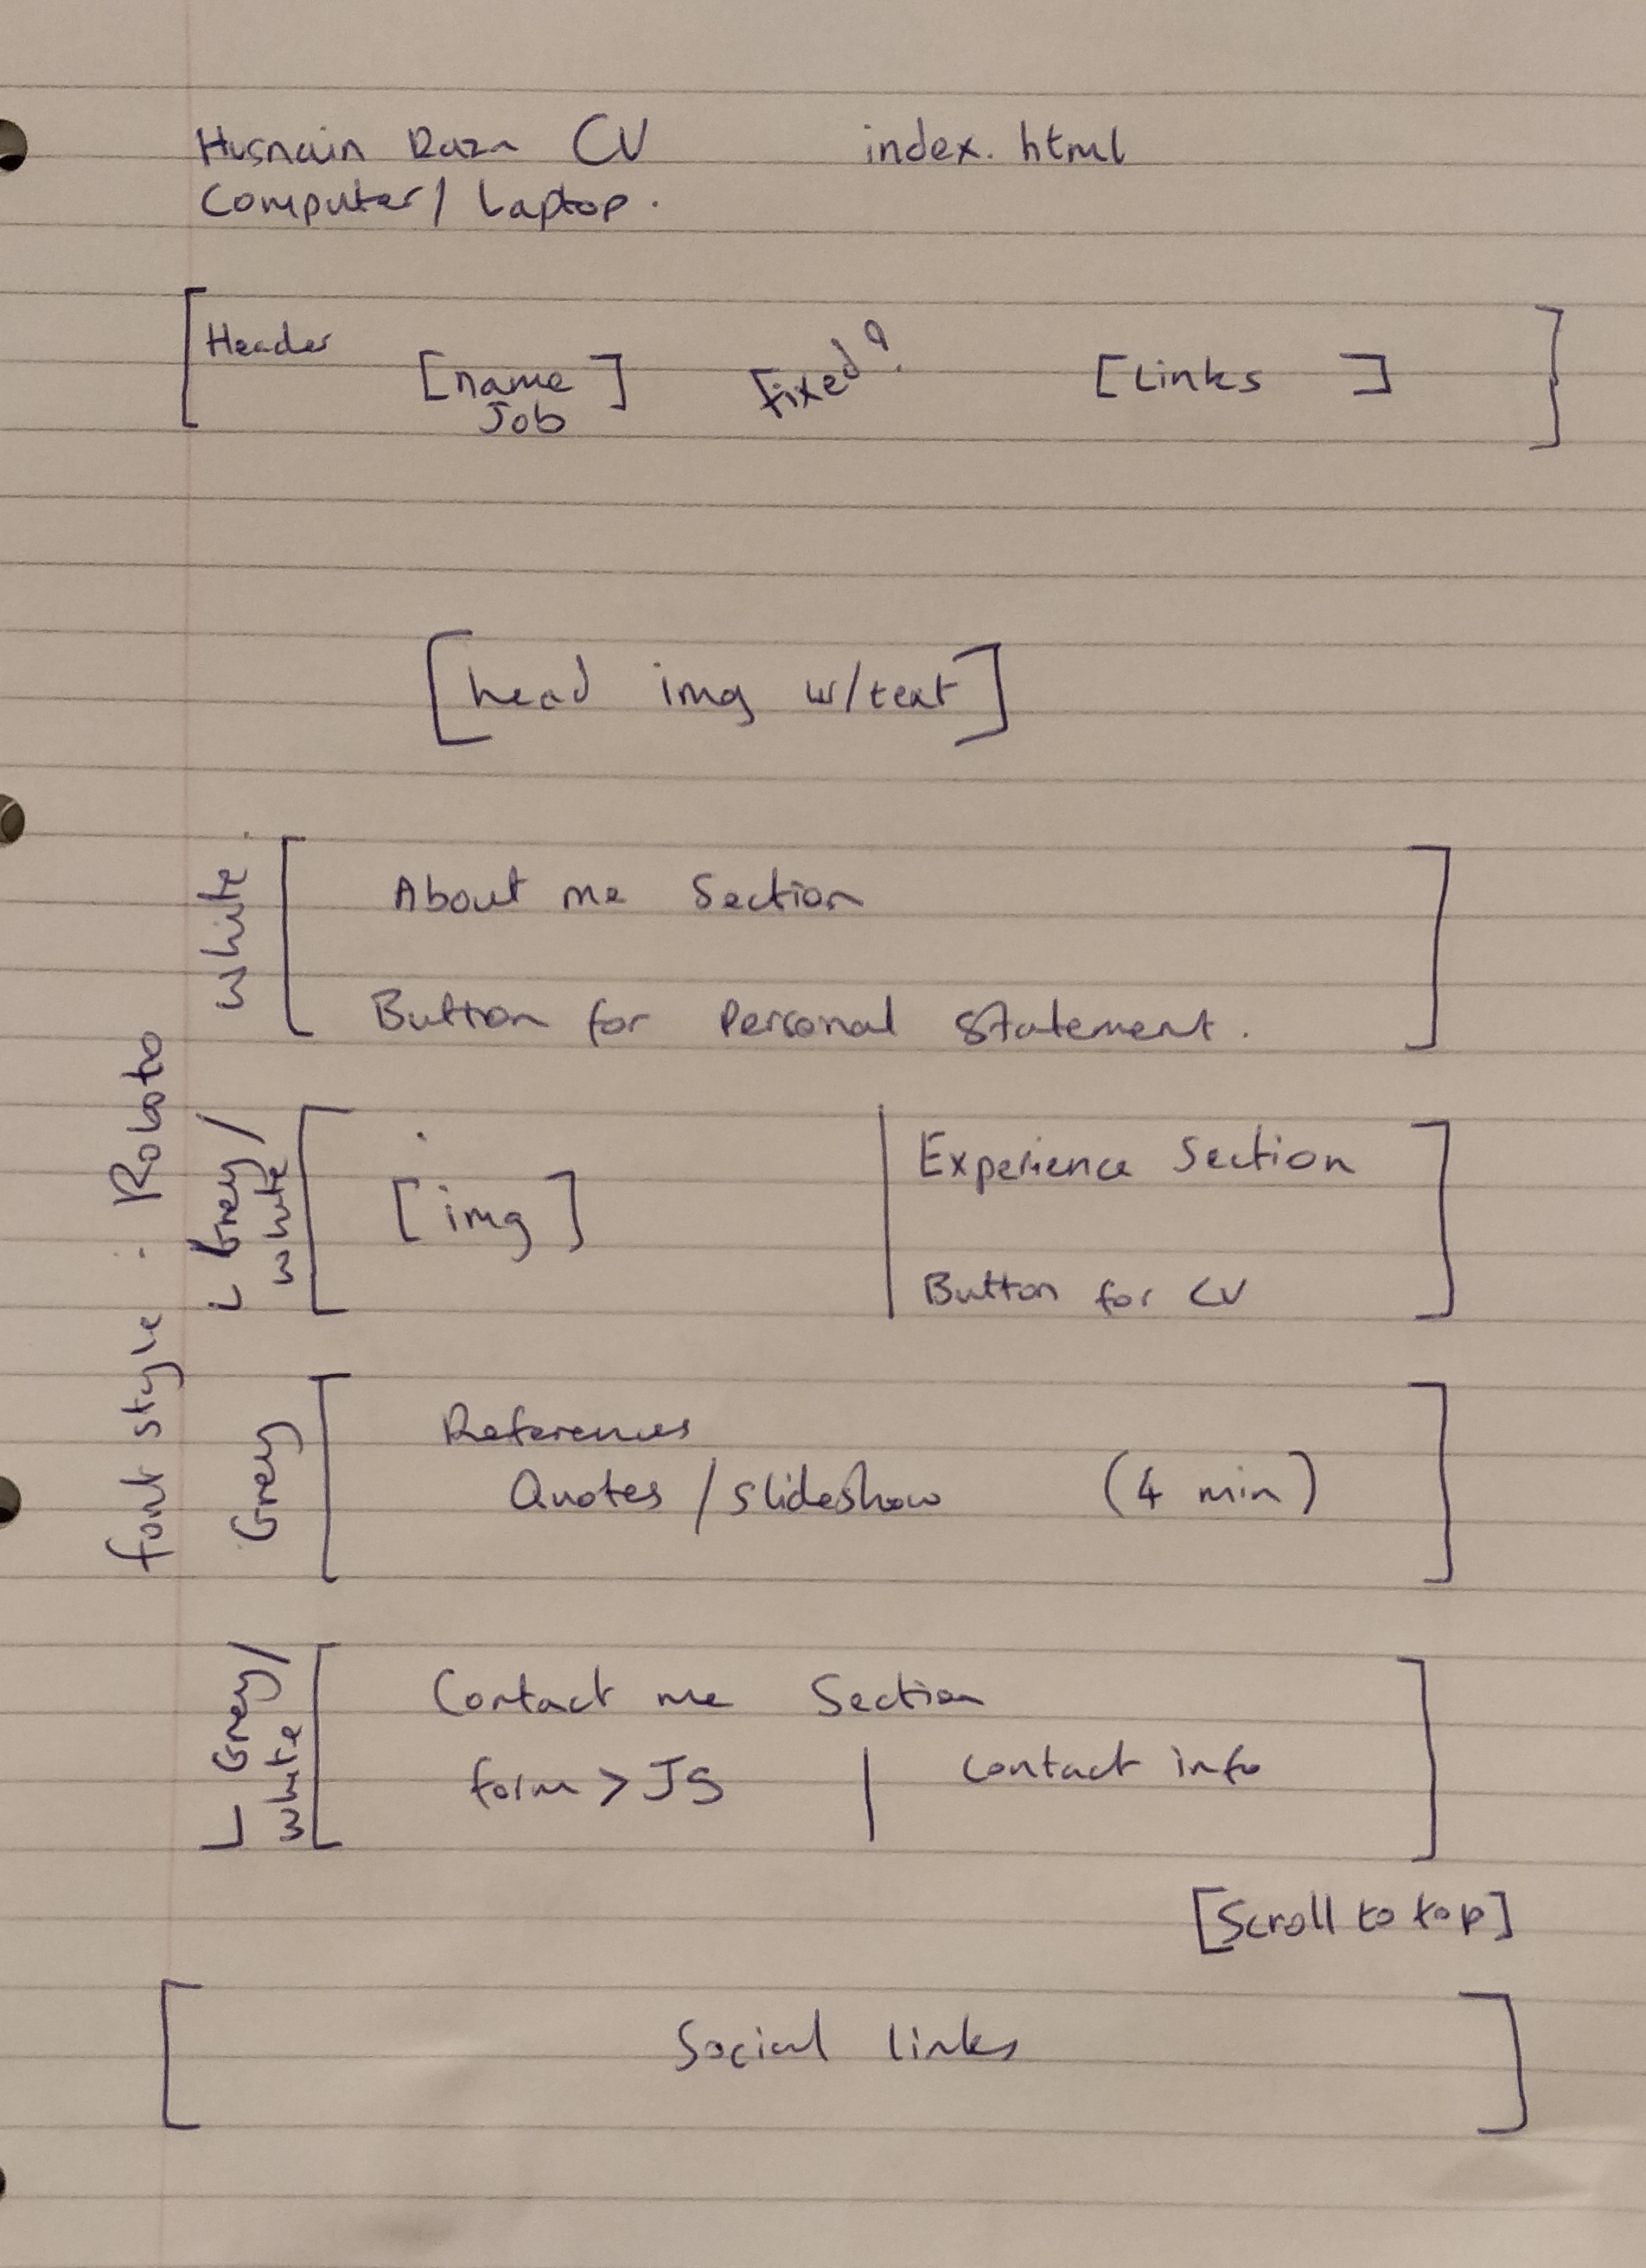 Husnain Raza CV index.html
Computer/Laptop.
[Header [name] fixed? [Links]]
Job
[head img w/text]
white [About me Section
Button for Personal Statement.]
font style: Roboto
Grey/
white [[img] | Experience Section
Button for CV]
Grey [References
Quotes/slideshow (4 min)]
Grey/
white [Contact me Section
form > JS | contact info]
[Scroll to top]
[Social links]